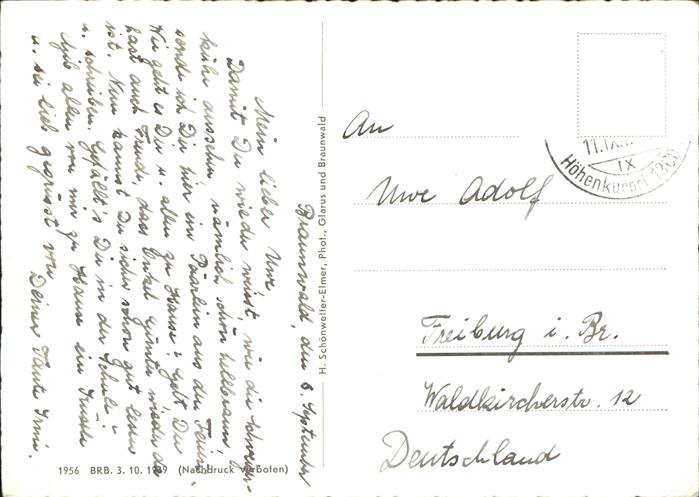 Braunwald, den 8. September
Mein lieber Uwe,
Damit Du wieder weisst, wie die Schweizer-
kühe aussehen, nämlich schön hellbraun,
sende ich Dir hier ein Pärlein aus den Ferien.
Wie geht es Dir u. allen zu Hause? Gelt, Du
hast auch Freude, dass Onkel Günter wieder da
ist. Nun kannst Du sicher schon gut lesen
u. schreiben. Gefällt's Dir in der Schule?
Gib allen von mir zu Hause ein Küssli
u. sei lieb gegrüsst von Deiner Tante Irmi.
1956 BRB. 3. 10. 1939 (Nachdruck verboten)
H. Schönwetter-Elmer, Phot., Glarus und Braunwald
11.IX.
IX
Höhenkurort 1300
An
Uwe Adolf
Freiburg i. Br.
Waldkircherstr. 12
Deutschland